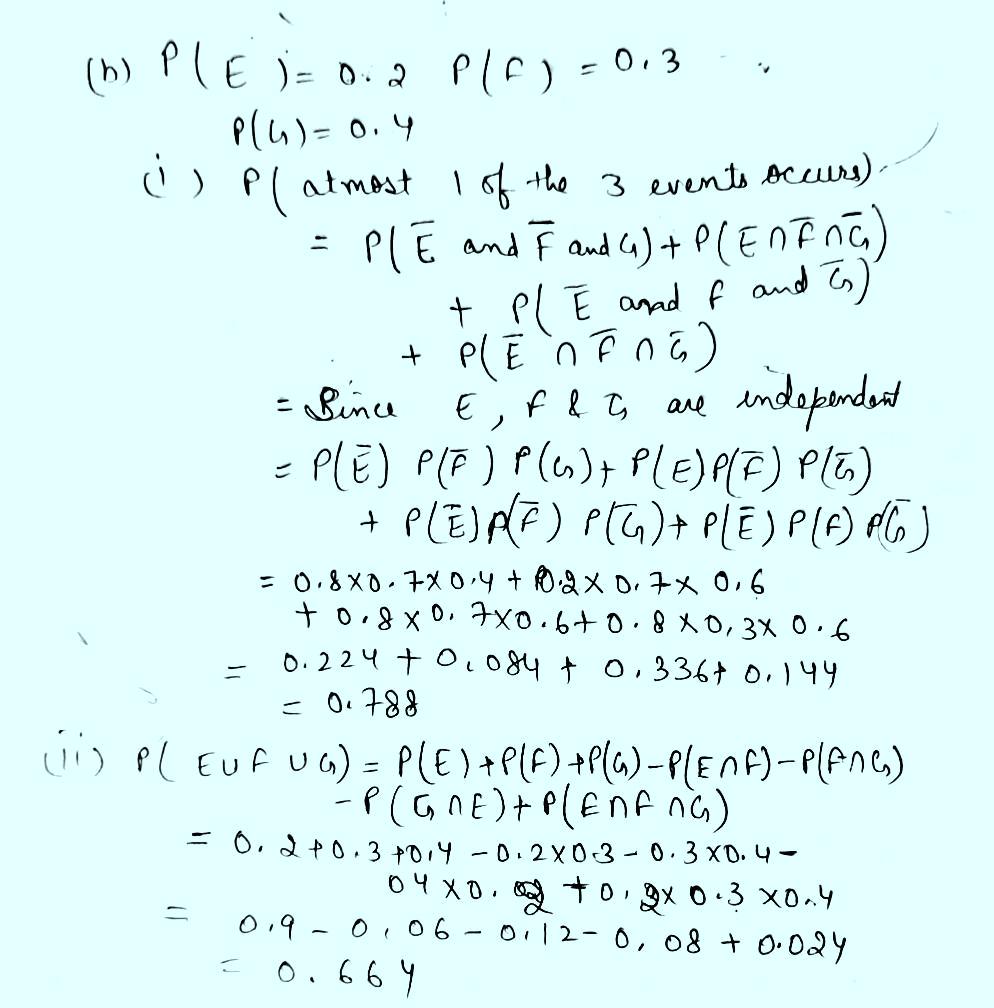 (b) P(E) = 0.2 P(F) = 0.3
P(G) = 0.4
(i) P(atmost 1 of the 3 events occurs)
= P(Ē and F̄ and G) + P(E ∩ F̄ ∩ Ḡ)
+ P(Ē and F and Ḡ)
+ P(Ē ∩ F̄ ∩ Ḡ)
= Since E, F & G are independent
= P(Ē) P(F̄) P(G) + P(E) P(F̄) P(Ḡ)
+ P(Ē) P(F̄) P(Ḡ) + P(Ē) P(F) P(Ḡ)
= 0.8 × 0.7 × 0.4 + 0.2 × 0.7 × 0.6
+ 0.8 × 0.7 × 0.6 + 0.8 × 0.3 × 0.6
= 0.224 + 0.084 + 0.336 + 0.144
= 0.788
(ii) P(E ∪ F ∪ G) = P(E) + P(F) + P(G) - P(E ∩ F) - P(F ∩ G)
- P(G ∩ E) + P(E ∩ F ∩ G)
= 0.2 + 0.3 + 0.4 - 0.2 × 0.3 - 0.3 × 0.4 -
04 × 0.2 + 0.2 × 0.3 × 0.4
= 0.9 - 0.06 - 0.12 - 0.08 + 0.024
= 0.664